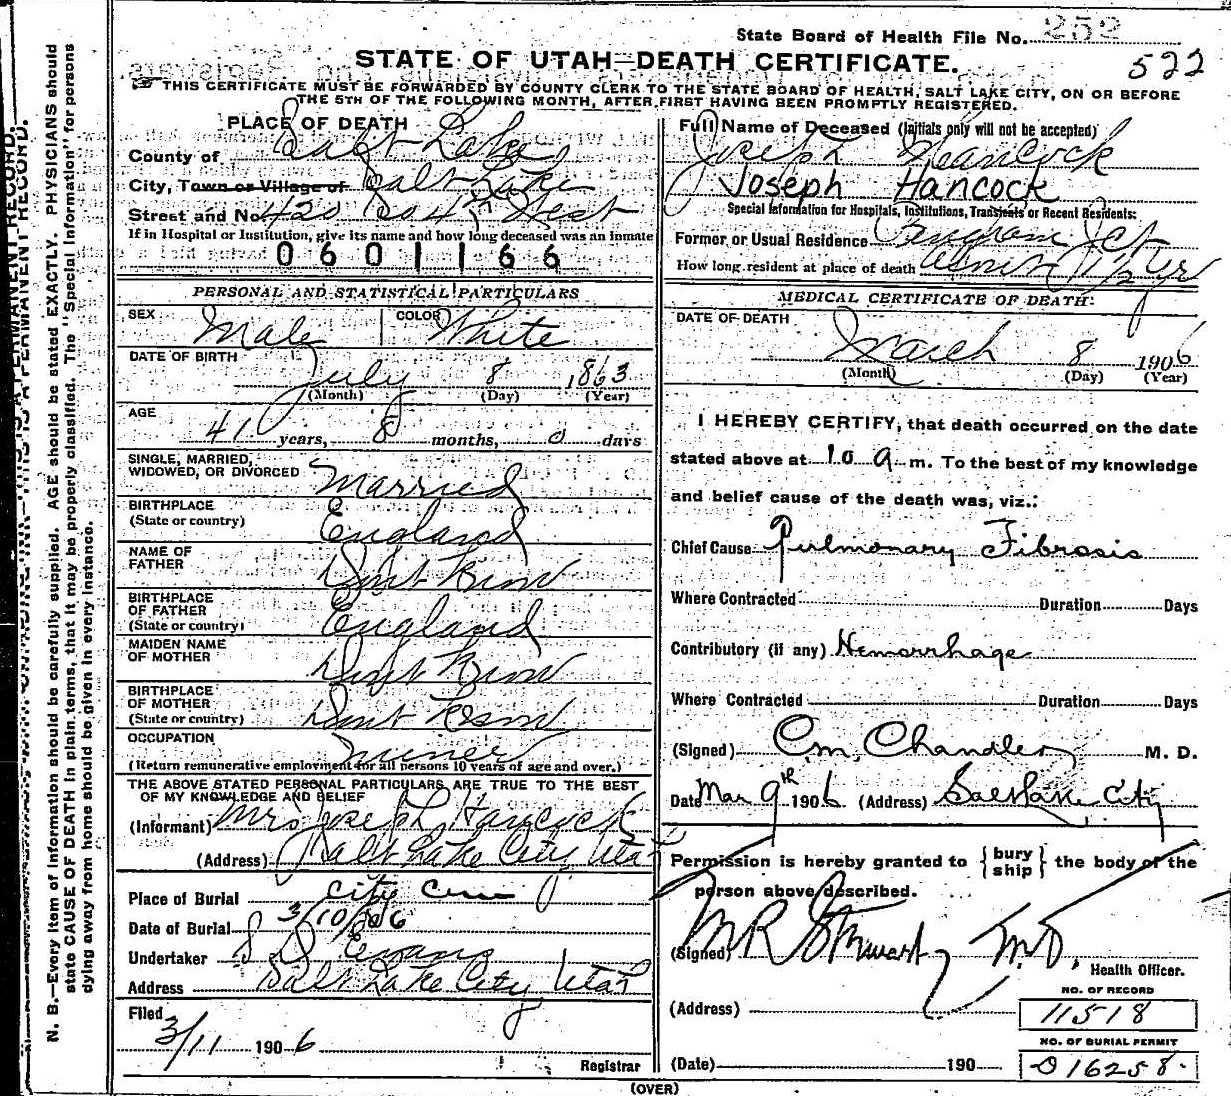 State Board of Health File No. 252
522
STATE OF UTAH—DEATH CERTIFICATE.
THIS CERTIFICATE MUST BE FORWARDED BY COUNTY CLERK TO THE STATE BOARD OF HEALTH, SALT LAKE CITY, ON OR BEFORE
THE 5TH OF THE FOLLOWING MONTH, AFTER FIRST HAVING BEEN PROMPTLY REGISTERED.
PLACE OF DEATH
County of Salt Lake
City, Town or Village of Salt Lake
Street and No. 420 So 4th West
If in Hospital or Institution, give its name and how long deceased was an inmate
0601166
PERSONAL AND STATISTICAL PARTICULARS
SEX Male COLOR White
DATE OF BIRTH
July 8 1863
(Month) (Day) (Year)
AGE
41 years, 8 months, 0 days
SINGLE, MARRIED,
WIDOWED, OR DIVORCED Married
BIRTHPLACE
(State or country) England
NAME OF
FATHER Dont Know
BIRTHPLACE
OF FATHER
(State or country) England
MAIDEN NAME
OF MOTHER Dont Know
BIRTHPLACE
OF MOTHER
(State or country) Dont Know
OCCUPATION Miner
(Return remunerative employment for all persons 10 years of age and over.)
THE ABOVE STATED PERSONAL PARTICULARS ARE TRUE TO THE BEST
OF MY KNOWLEDGE AND BELIEF
(Informant) Mrs Joseph Hancock
(Address) Salt Lake City Utah
Place of Burial City Cem
Date of Burial 3/10/06
Undertaker S. D. Evans
Address Salt Lake City Utah
Filed
3/11 1906
Registrar
Full Name of Deceased (Initials only will not be accepted)
Joseph Hancock
Joseph Hancock
Special Information for Hospitals, Institutions, Transients or Recent Residents:
Former or Usual Residence Bingham Jct
How long resident at place of death 1 1/2 yr
MEDICAL CERTIFICATE OF DEATH:
DATE OF DEATH
March 8 1906
(Month) (Day) (Year)
I HEREBY CERTIFY, that death occurred on the date
stated above at 10 a m. To the best of my knowledge
and belief cause of the death was, viz.:
Chief Cause Pulmonary Fibrosis
Where Contracted Duration Days
Contributory (if any) Hemorrhage
Where Contracted Duration Days
(Signed) C. M. Chandler M. D.
Date Mar 9th 1906 (Address) Salt Lake City
Permission is hereby granted to { bury ship } the body of the
person above described.
(Signed) M R Stewart M.D.
Health Officer.
(Address)
NO. OF RECORD
11518
NO. OF BURIAL PERMIT
(Date) 190 016258
(OVER)
N. B.—Every item of information should be carefully supplied. AGE should be stated EXACTLY. PHYSICIANS should
state CAUSE OF DEATH in plain terms, that it may be properly classified. The "Special Information" for persons
dying away from home should be given in every instance.